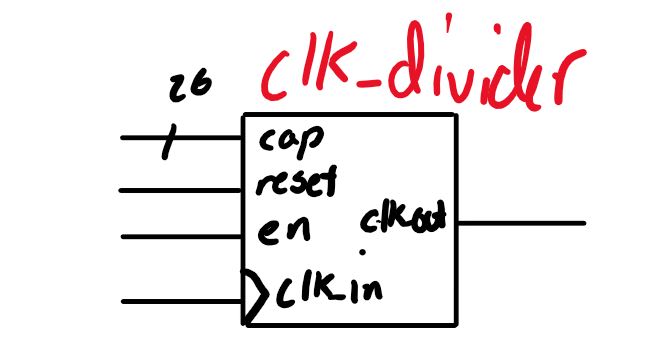 clk_divider
26
cap
reset
en
clk_out
clk_in